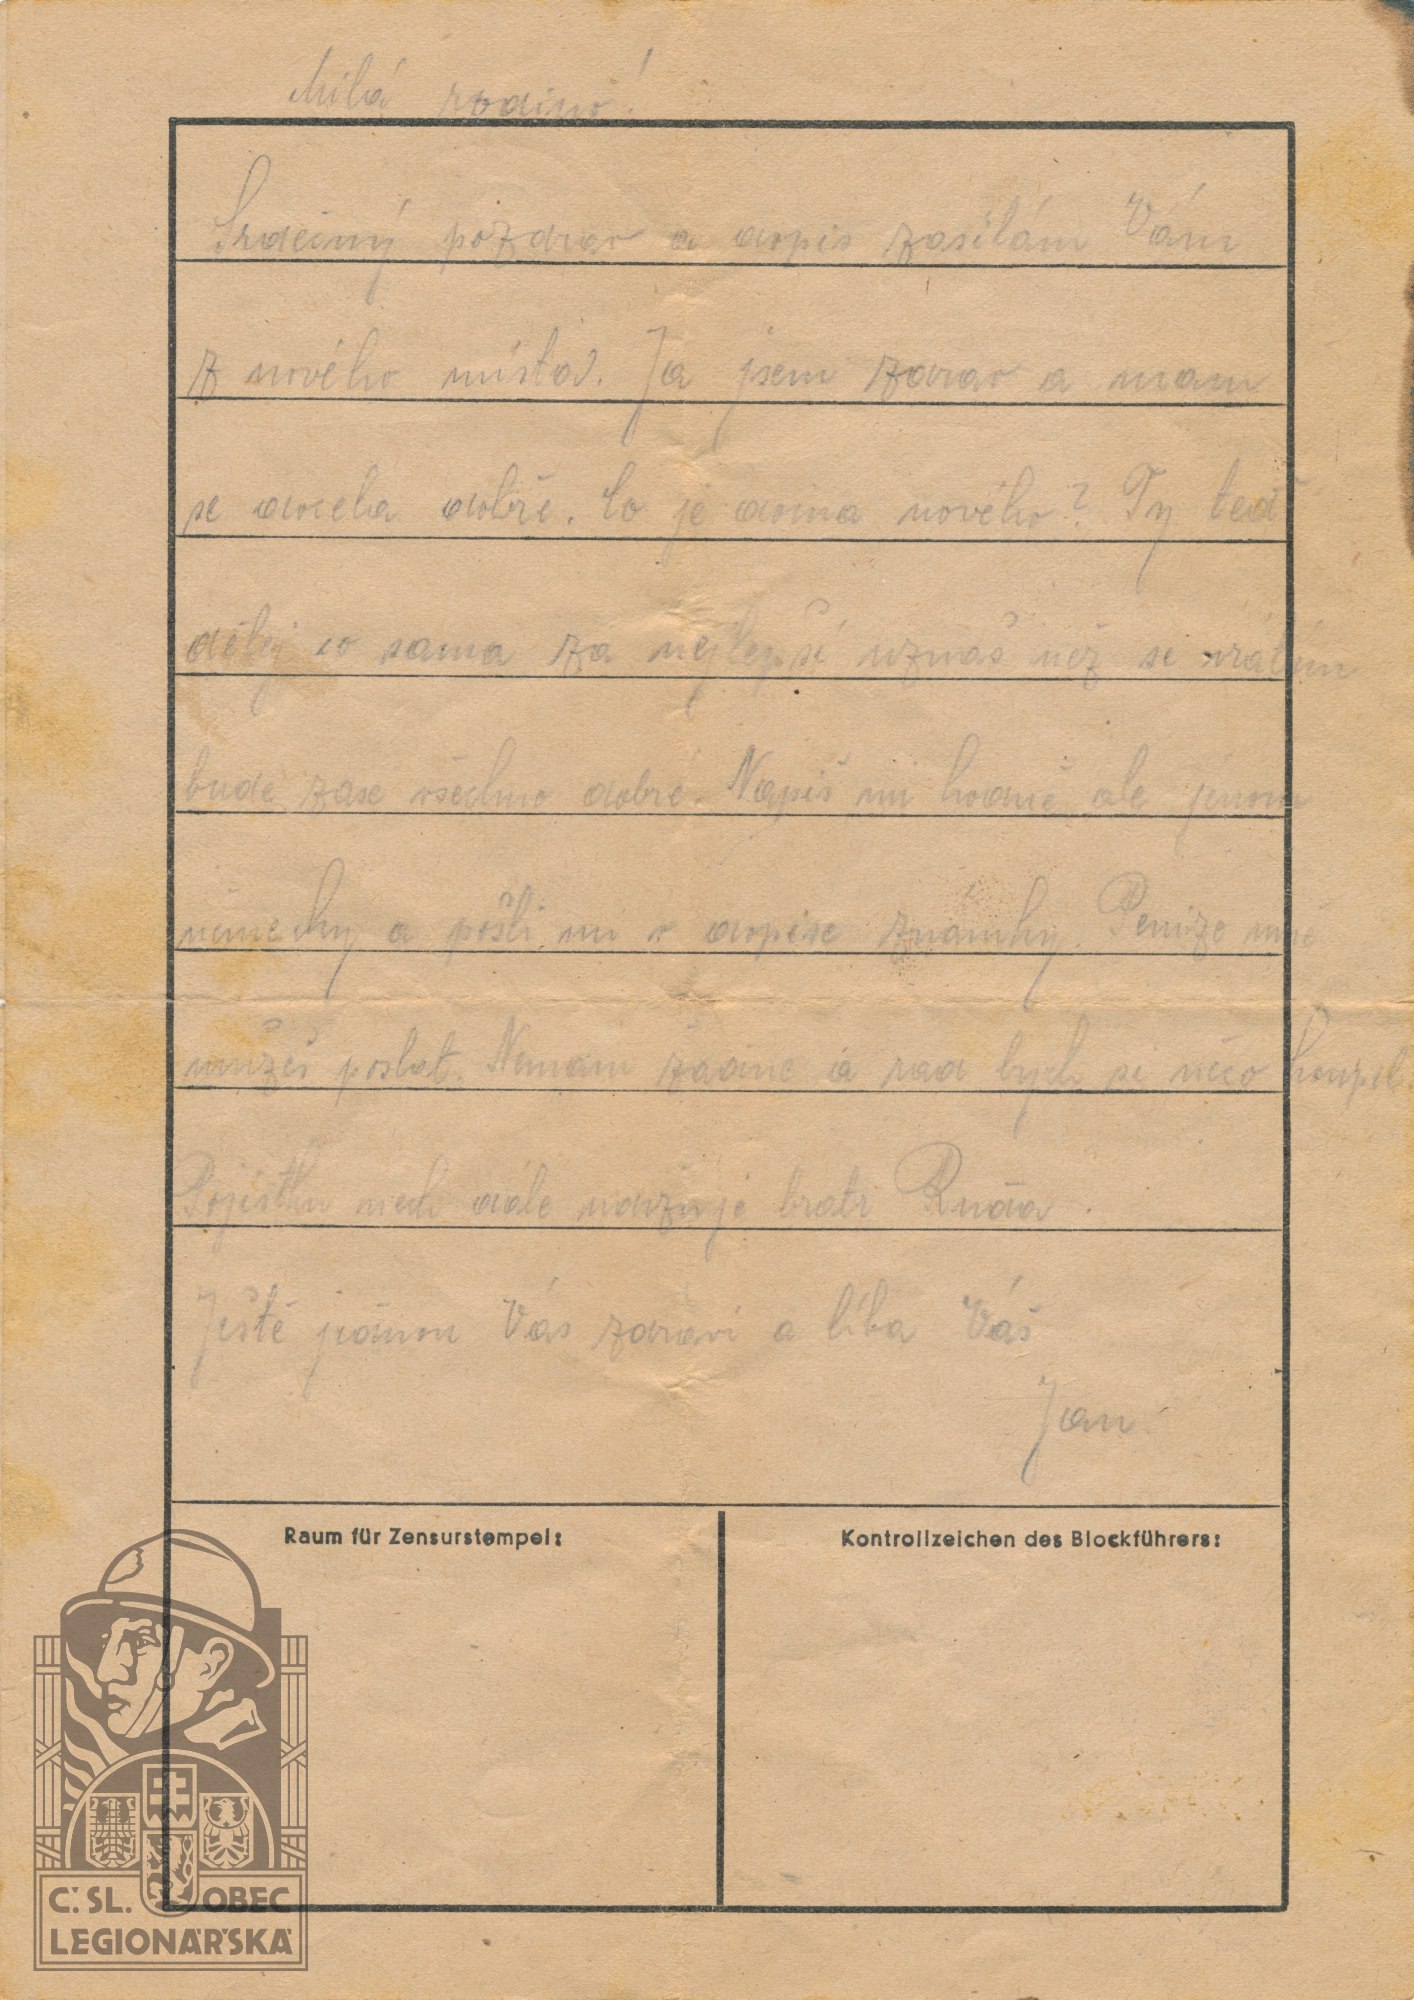 Milá rodino!
Srdečný pozdrav a dopis zasílám Vám
z nového místa. Ja jsem zdrav a mam
se docela dobře. Co je doma nového? Ty teď
dělej co sama za nejlepší uznaš než se vrátím
bude zase všechno dobré. Napiš mi hodně ale jenom
německy a pošli mi v dopise známky. Penize mně
mužeš poslat. Nemam žadne a rad bych si něco koupil.
Pojistku nech dále udržuje bratr Ruda.
Ještě jednou Vás zdravi a líba Váš
Jan.
Raum für Zensurstempel:
Kontrollzeichen des Blockführers:
Č. SL. OBEC
LEGIONÁŘSKÁ